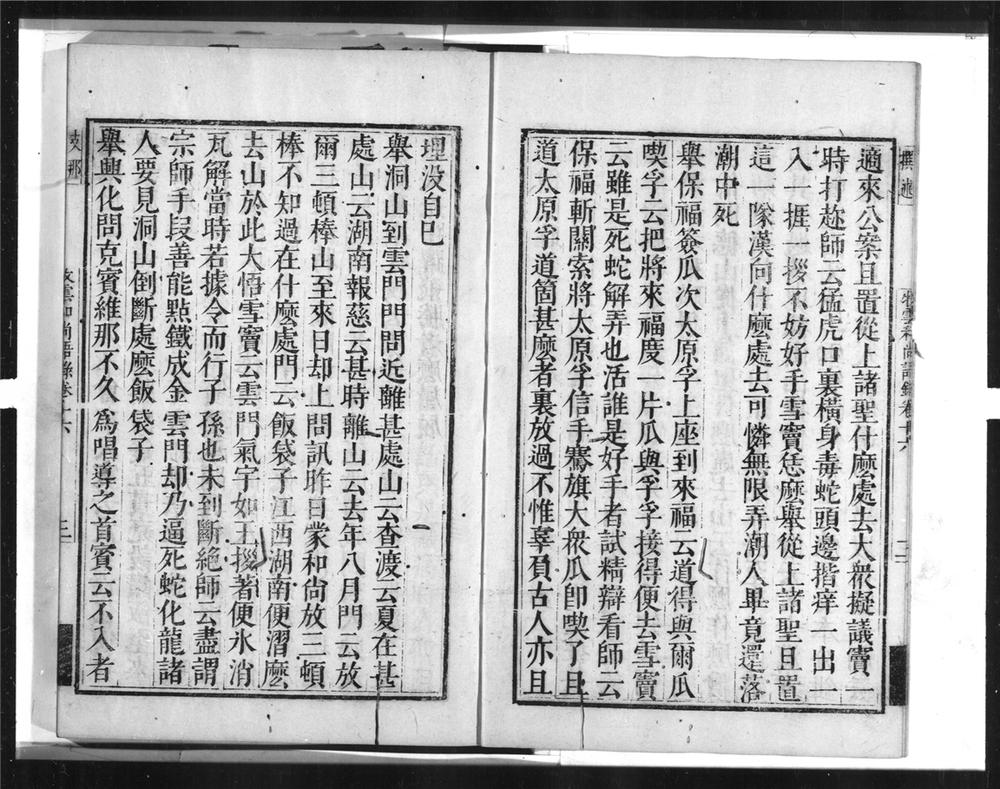 適來公案且置從上諸聖什麼處去大衆擬議竇一
時打趂師云猛虎口裏橫身毒蛇頭邊揩痒一出一
入一捱一拶不妨好手雪竇恁麼舉從上諸聖且置
這一隊漢向什麼處去可憐無限弄潮人畢竟還落
潮中死
舉保福簽瓜次太原孚上座到來福云道得與爾瓜
喫孚云把將來福度一片瓜與孚孚接得便去雪竇
云雖是死蛇解弄也活誰是好手者試精辯看師云
保福斬關索將太原孚信手騫旗大衆瓜即喫了且
道太原孚道箇甚麼者裏放過不惟辜負古人亦且
埋沒自己
舉洞山到雲門門問近離甚處山云查渡云夏在甚
處山云湖南報慈云甚時離山云去年八月門云放
爾三頓棒山至來日却上問訊昨日蒙和尚放三頓
棒不知過在什麼處門云飯袋子江西湖南便漝麼
去山於此大悟雪竇云雲門氣宇如王拶著便氷消
瓦解當時若據令而行子孫也未到斷絶師云盡謂
宗師手段善能點鐵成金雲門却乃逼死蛇化龍諸
人要見洞山倒斷處麼飯袋子
舉興化問克賓維那不久爲唱導之首賓云不入者
支那